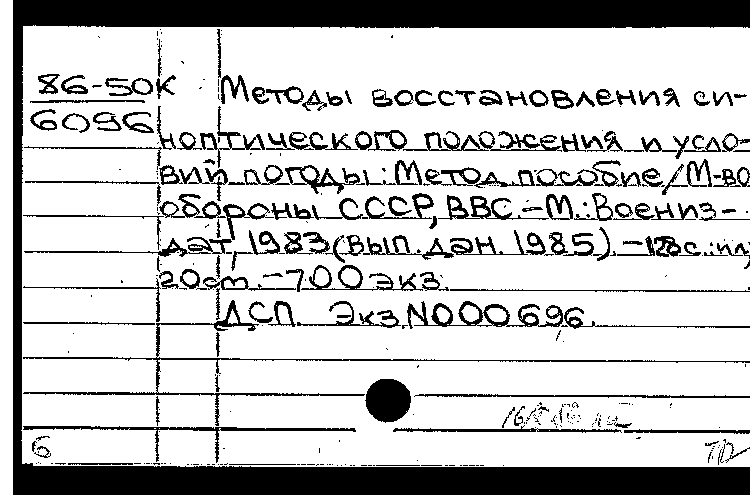 86-50К Методы восстановления си-
6096
ноптического положения и усло-
вий погоды: Метод. пособие/М-во
обороны СССР, ВВС.-М.: Воениз-
дат, 1983 (вып. дан. 1985).-128с.:ил;
20см.-700экз.
ДСП. Экз.N000696.
6